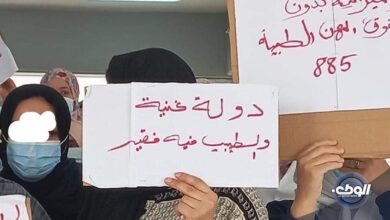 بدون
المهن الطبية
885
دولة غنية
والطبيب فيه فقير
الوطن